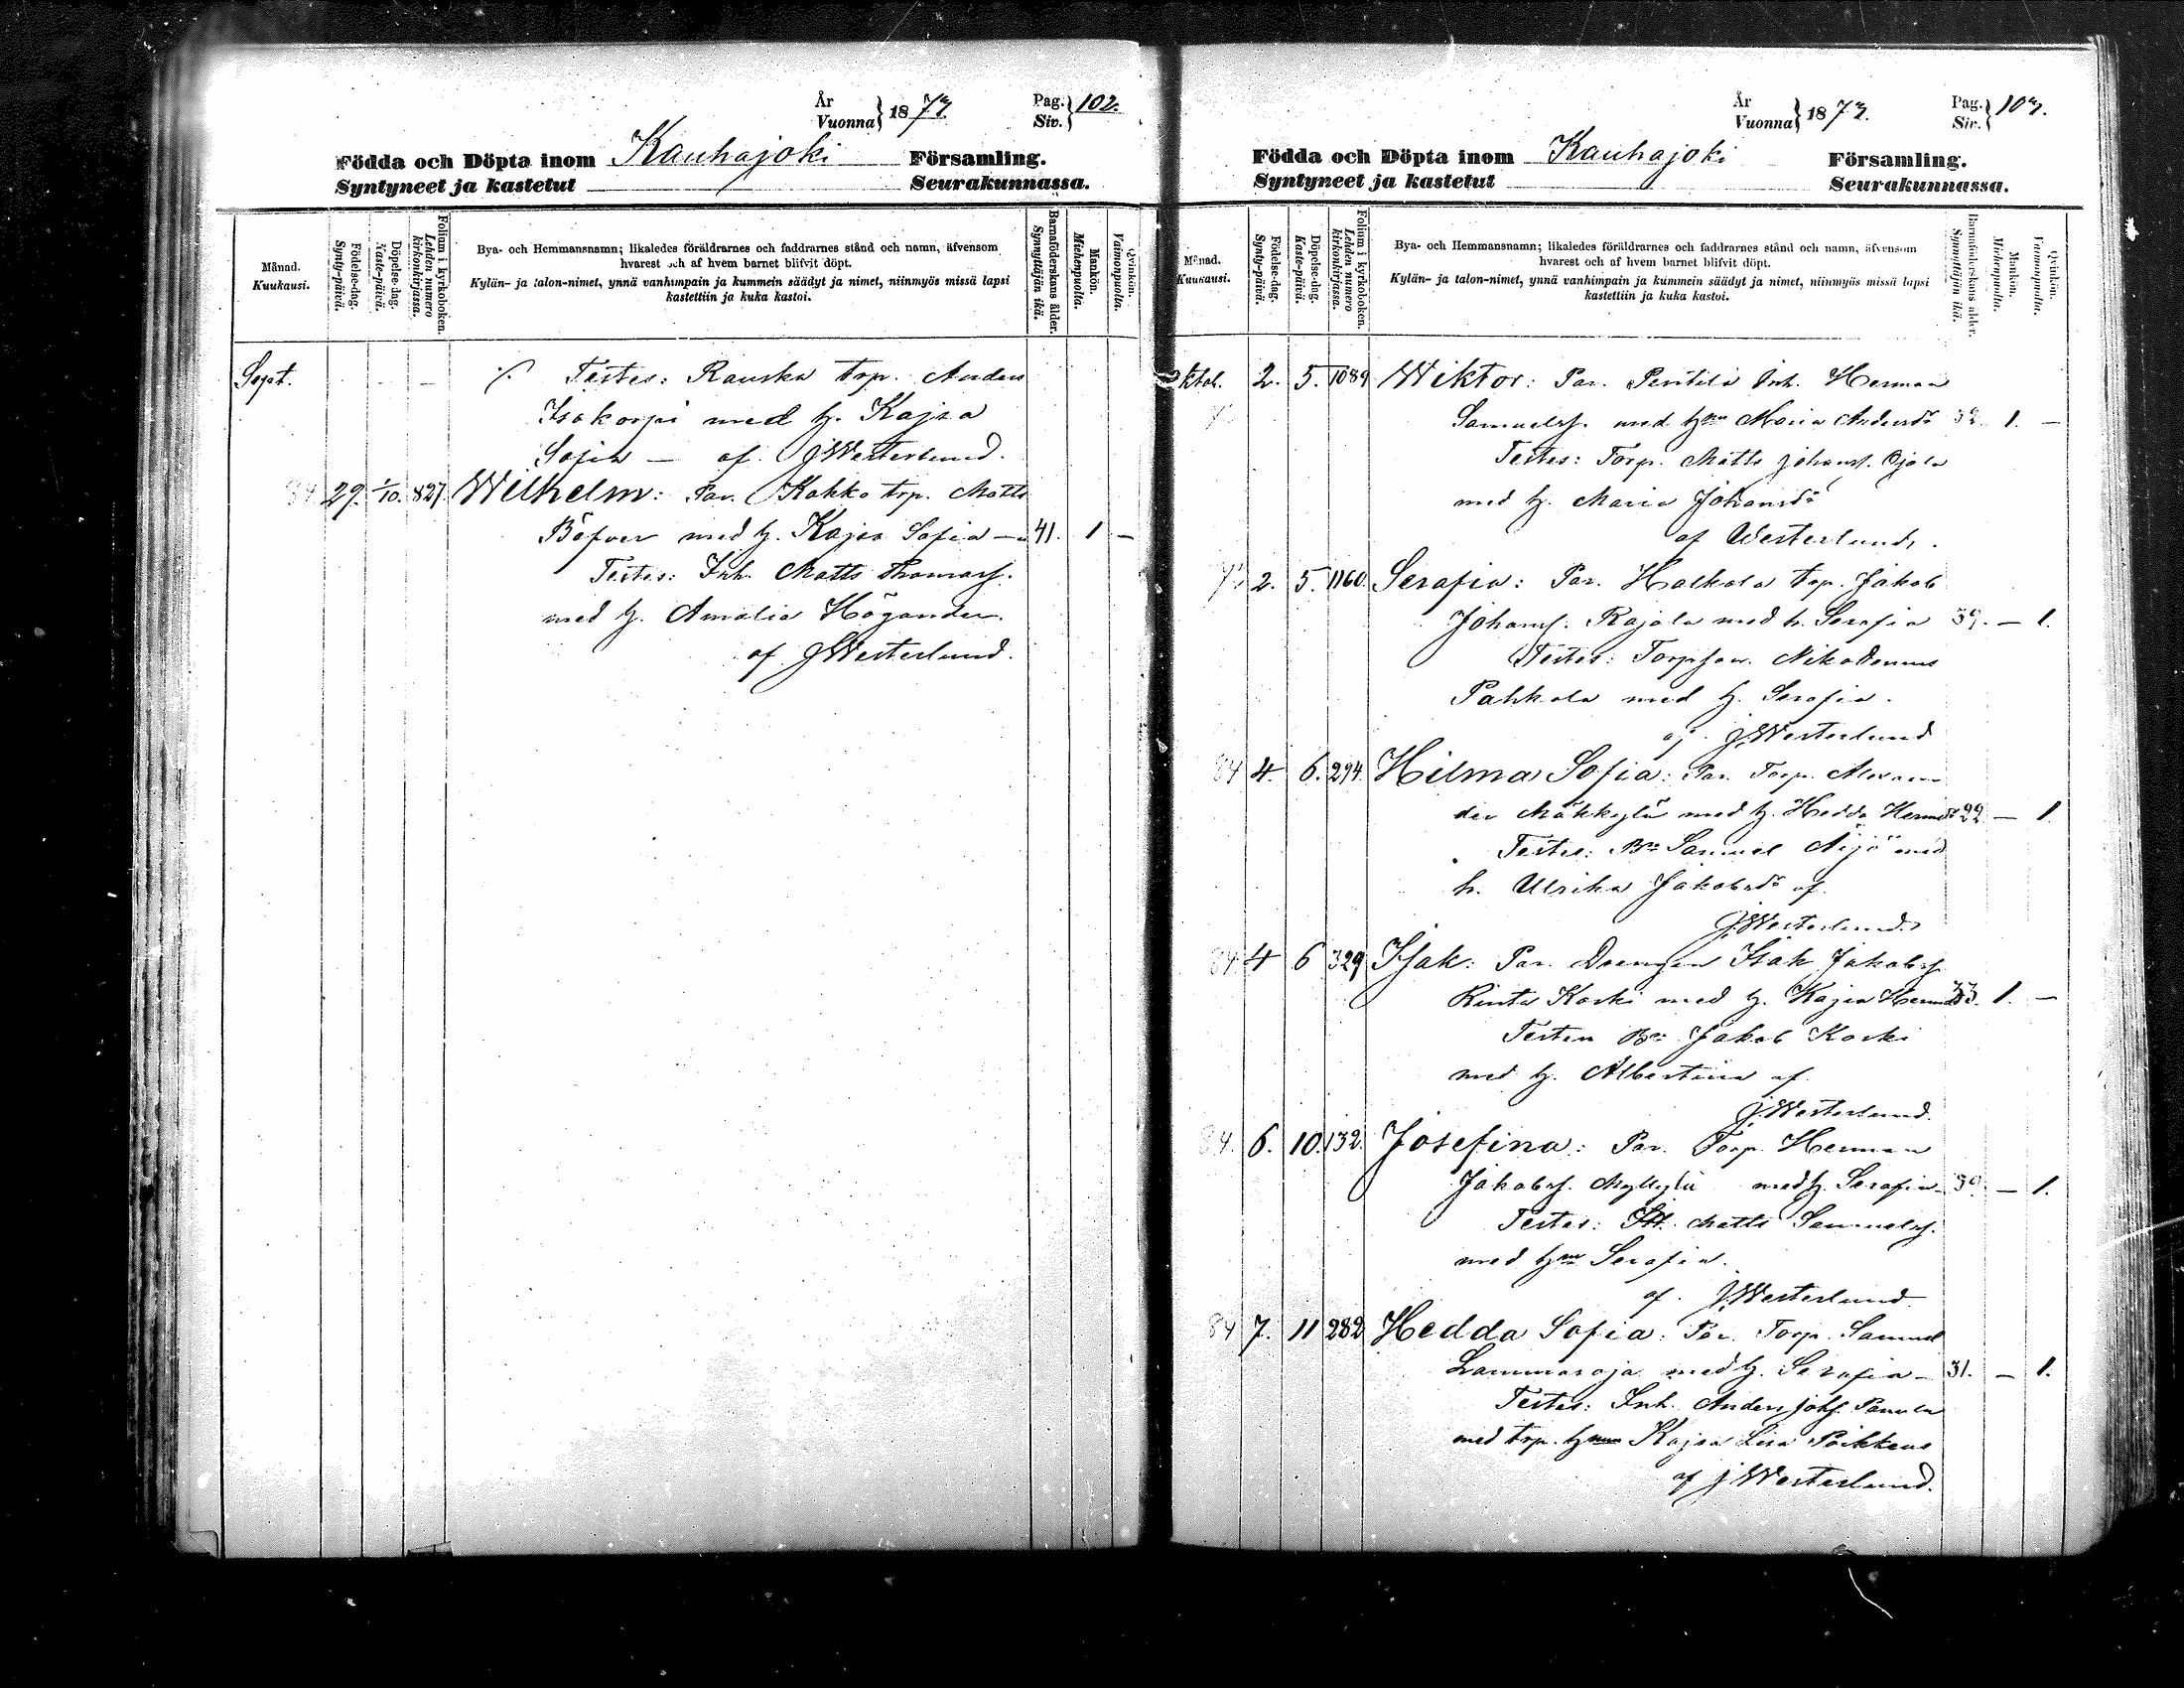 År
Vuonna} 1873.
Pag.
Siv.} 102.
Födda och Döpta inom Kauhajoki Församling.
Syntyneet ja kastetut Seurakunnassa.
Månad.
Kuukausi.
Födelse-dag.
Synty-päivä.
Döpelse-dag.
Kaste-päivä.
Folium i kyrkoboken.
Lehden numero
kirkonkirjassa.
Bya- och Hemmansnamn; likaledes föräldrarnes och faddrarnes stånd och namn, äfvensom
hvarest och af hvem barnet blifvit döpt.
Kylän- ja talon-nimet, ynnä vanhimpain ja kummein säädyt ja nimet, niinmyös missä lapsi
kastettiin ja kuka kastoi.
Barnaföderskans ålder.
Synnyttäjän ikä.
Mankön.
Miehenpuolta.
Qvinkön.
Vaimonpuolta.
Sept. - - - ./. Testes: Rauska trp. Anders
Isokorpi med h. Kajsa
Sofia — af JWesterlund.
84 29. 1/10. 827. Wilhelm: Par. Kokko trp. Matts
Böfver med h. Kajsa Sofia — 41. 1 —
Testes: Inh. Matts Thomass.
med h. Amalia Högander.
af JWesterlund.
År
Vuonna} 1873.
Pag.
Sir.} 103.
Födda och Döpta inom Kauhajoki Församling.
Syntyneet ja kastetut Seurakunnassa.
Månad.
Kuukausi.
Födelse-dag.
Synty-päivä.
Döpelse-dag.
Kaste-päivä.
Folium i kyrkoboken.
Lehden numero
kirkonkirjassa.
Bya- och Hemmansnamn; likaledes föräldrarnes och faddrarnes stånd och namn, äfvensom
hvarest och af hvem barnet blifvit döpt.
Kylän- ja talon-nimet, ynnä vanhimpain ja kummein säädyt ja nimet, niinmyös missä lapsi
kastettiin ja kuka kastoi.
Barnaföderskans ålder.
Synnyttäjän ikä.
Mankön.
Miehenpuolta.
Qvinkön.
Vaimonpuolta.
Oktob. 2. 5. 1089 Wiktor: Par. Penttilä Inh. Herman
Samuelss. med hn Maria Andersdr 1. —
Testes: Torp. Matts Johanss. Ojala
med h. Maria Johansdr
af Westerlund.
2. 5. 1160. Serafia: Par. Halkola trp. Jakob
Johanss. Rajala med h. Serafia 39. — 1.
Testes: Torpson. Nikodemus
Pahkala med h. Serafia.
af JWesterlund
84 4. 6. 294. Hilma Sofia: Par. Torp. Alexan
der Mäkkylä med h. Hedda Hermsdr 22 — 1.
Testes: Bn Samuel Äijö med
h. Ulrika Jakobsdr af
JWesterlund.
84 4 6 329 Isak: Par. Drengen Isak Jakobss.
Rinta Koski med h. Kajsa 33. 1. —
Testes Bn Jakob Koski
med h. Albertina af
JWesterlund.
84. 6. 10. 132. Josefina: Par. Torp. Herman
Jakobss. Myllylä med h. Serafia — 1.
Testes: Matts Samuelss.
med hn Serafia.
af. JWesterlund
84 7. 11 282 Hedda Sofia: Par. Torp. Samuel
Lammasoja med h. Serafia — 31. — 1.
Testes: Inh. Anders Johs. Panula
med trp. h Kajsa Lisa Poikkeus
af JWesterlund.